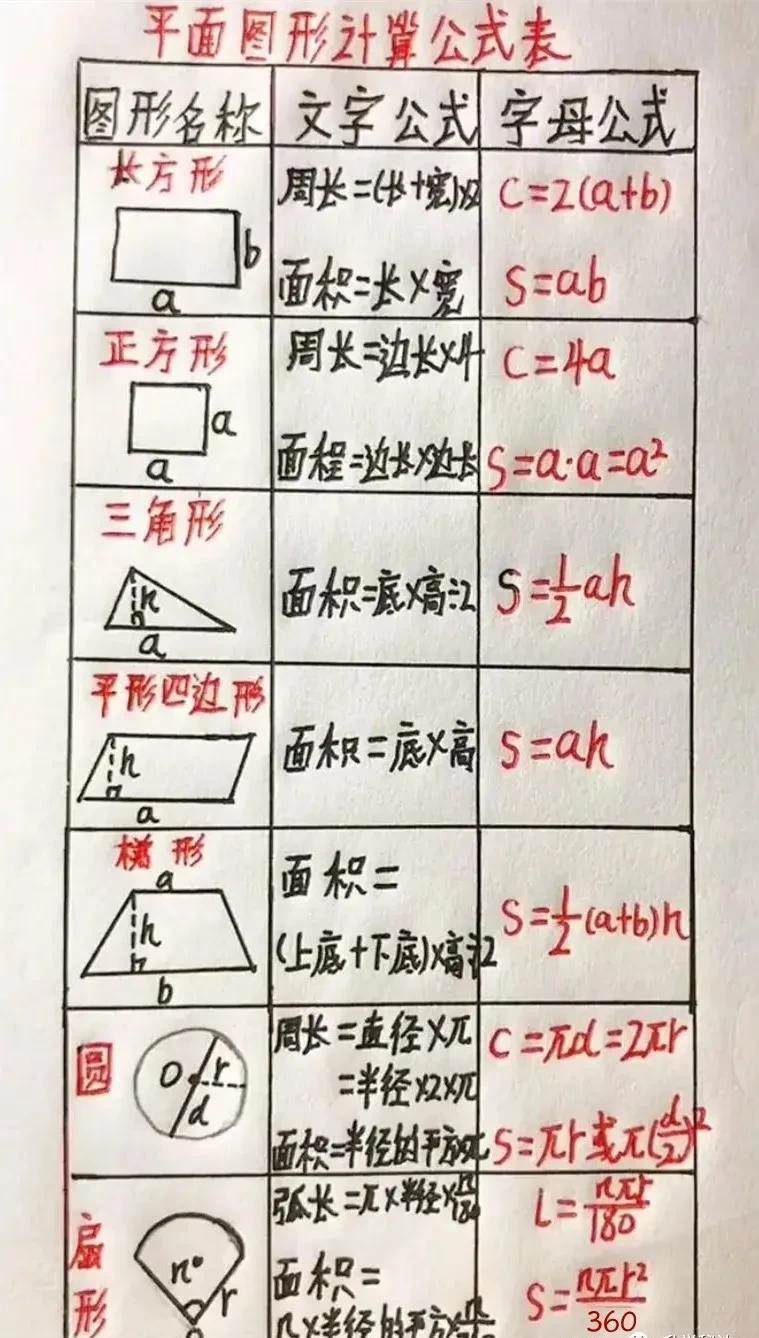 平面图形计算公式表
图形名称 文字公式 字母公式
长方形 周长=(长+宽)×2 C=2(a+b)
b
面积=长×宽 S=ab
a
正方形 周长=边长×4 C=4a
a
面程=边长×边长 S=a·a=a²
a
三角形
h 面积=底×高÷2 S=½ah
a
平形四边形
h 面积=底×高 S=ah
a
梯形 面积=
a
h (上底+下底)×高÷2 S=½(a+b)h
b
圆 周长=直径×π C=πd=2πr
O r =半径×2×π
d 面积=半径的平方×π S=πr或π(d/2)²
扇形 弧长=π×半径×n/180 L=nπr/180
n° 面积= S=nπr²/360
r
半径的平方×